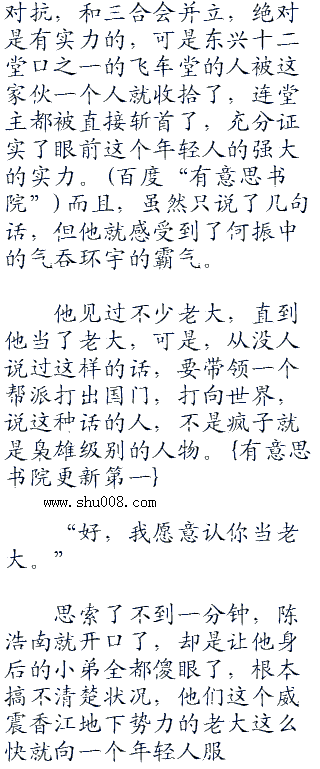 对抗，和三合会并立，绝对
是有实力的，可是东兴十二
堂口之一的飞车堂的人被这
家伙一个人就收拾了，连堂
主都被直接斩首了，充分证
实了眼前这个年轻人的强大
的实力。(百度“有意思书
院”)而且，虽然只说了几句
话，但他就感受到了何振中
的气吞环宇的霸气。
他见过不少老大，直到
他当了老大，可是，从没人
说过这样的话，要带领一个
帮派打出国门，打向世界，
说这种话的人，不是疯子就
是枭雄级别的人物。{有意思
书院更新第一}
www.shu008.com
“好，我愿意认你当老
大。”
思索了不到一分钟，陈
浩南就开口了，却是让他身
后的小弟全都傻眼了，根本
搞不清楚状况，他们这个威
震香江地下势力的老大这么
快就向一个年轻人服